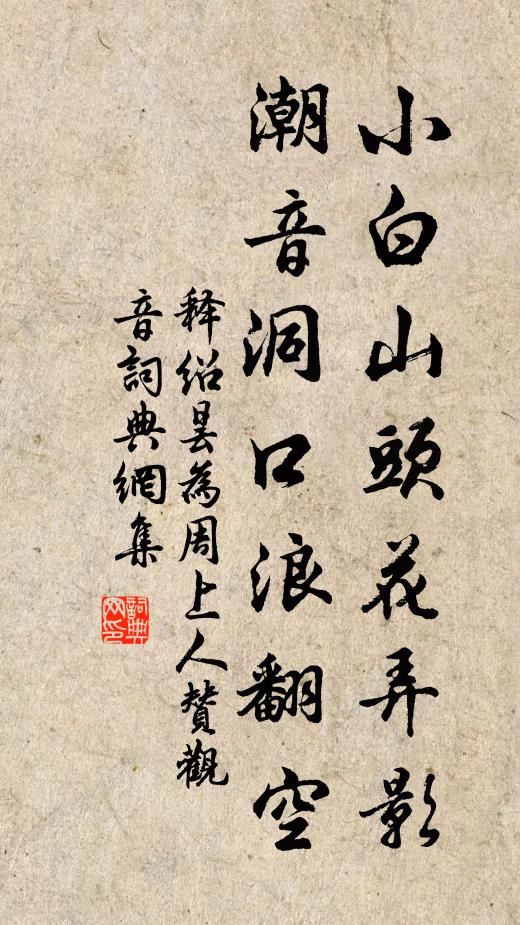 小白山頭花弄影
潮音洞口浪翻空
释绍昙為周上人贊觀
音詞典網集
詞典
网印